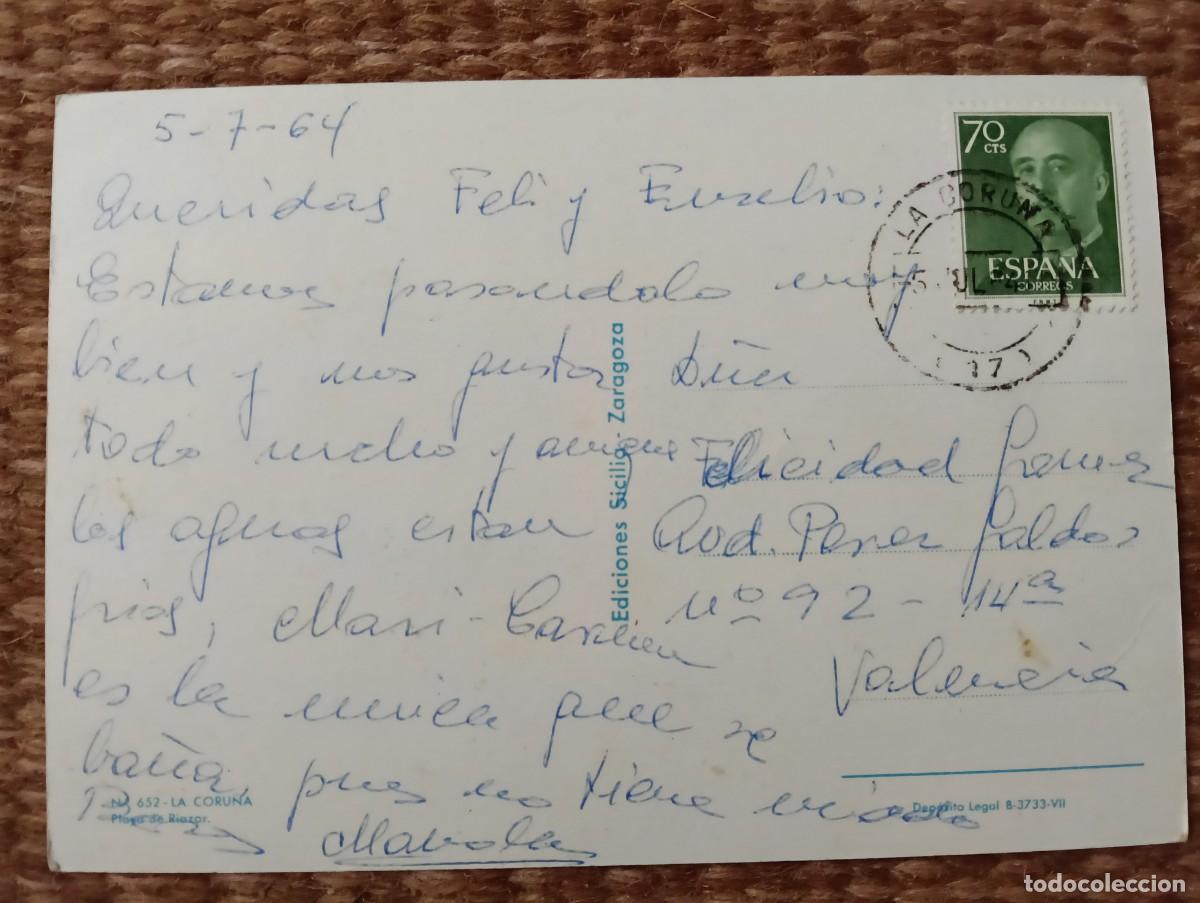 5-7-64
Queridas Feli y Euselio:
Estamos pasandolo muy
bien y nos gusta
todo mucho y aunque
las aguas estan
frias, Mari-Carmen
es la unica que se
baña, pues no tiene miedo
Manola
70
CTS
ESPAÑA
CORREOS
LA CORUÑA
5 JUL
Dña
Felicidad Gomez
Avd. Perez Galdos
nº 92 - 14ª
Valencia
Ediciones Sicilia - Zaragoza
Nº 652 - LA CORUÑA
Playa de Riazor.
Depósito Legal B-3733-VII
todocoleccion